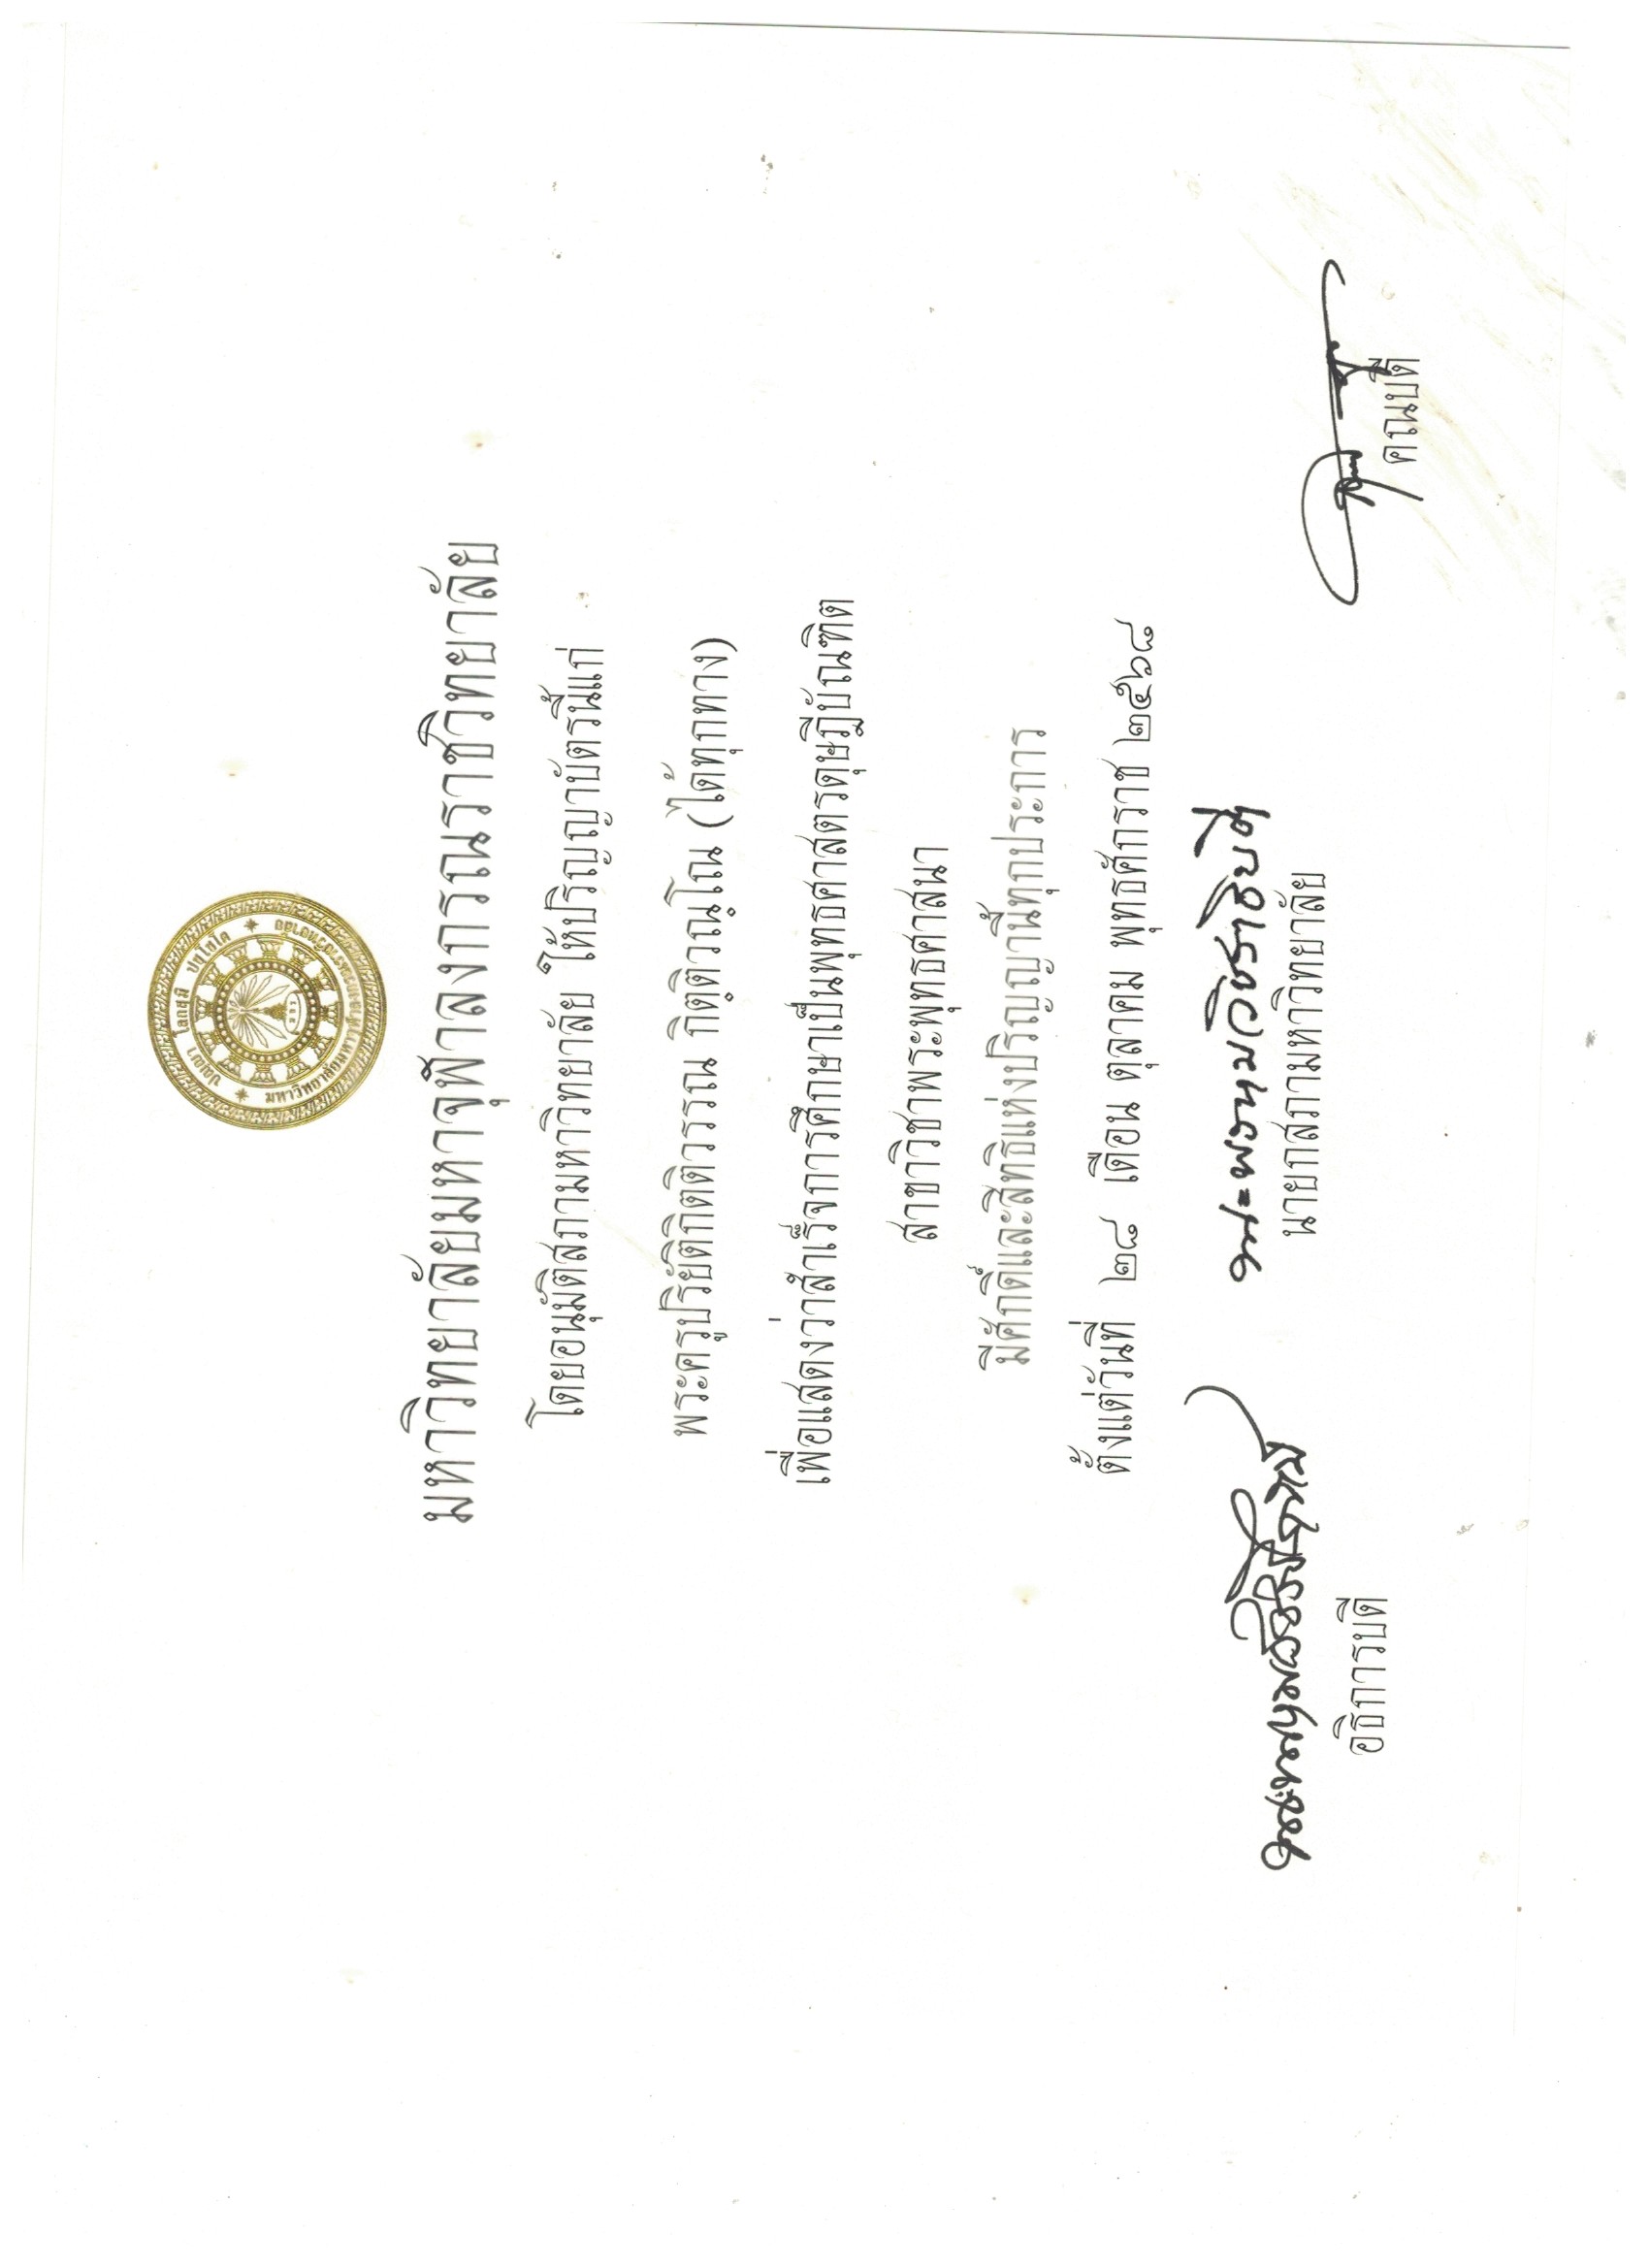 มหาวิทยาลัยมหาจุฬาลงกรณราชวิทยาลัย
โดยอนุมัติสภามหาวิทยาลัย ให้ปริญญาบัตรนี้แก่
พระครูปริยัติกิตติวรรณ กิตฺติวณฺโณ (ได้ทุกทาง)
เพื่อแสดงว่าสำเร็จการศึกษาเป็นพุทธศาสตรดุษฎีบัณฑิต
สาขาวิชาพระพุทธศาสนา
มีศักดิ์และสิทธิแห่งปริญญานี้ทุกประการ
ตั้งแต่วันที่ ๒๘ เดือน ตุลาคม พุทธศักราช ๒๕๖๘
อธิการบดี
นายกสภามหาวิทยาลัย
คณบดี